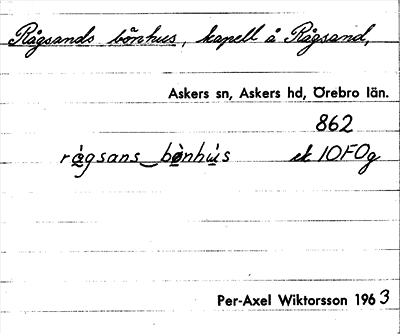 Rågsands bönhus, kapell å Rågsand,
Askers sn, Askers hd, Örebro län.
862
rågsans bönhus ek 10F0g
Per-Axel Wiktorsson 1963